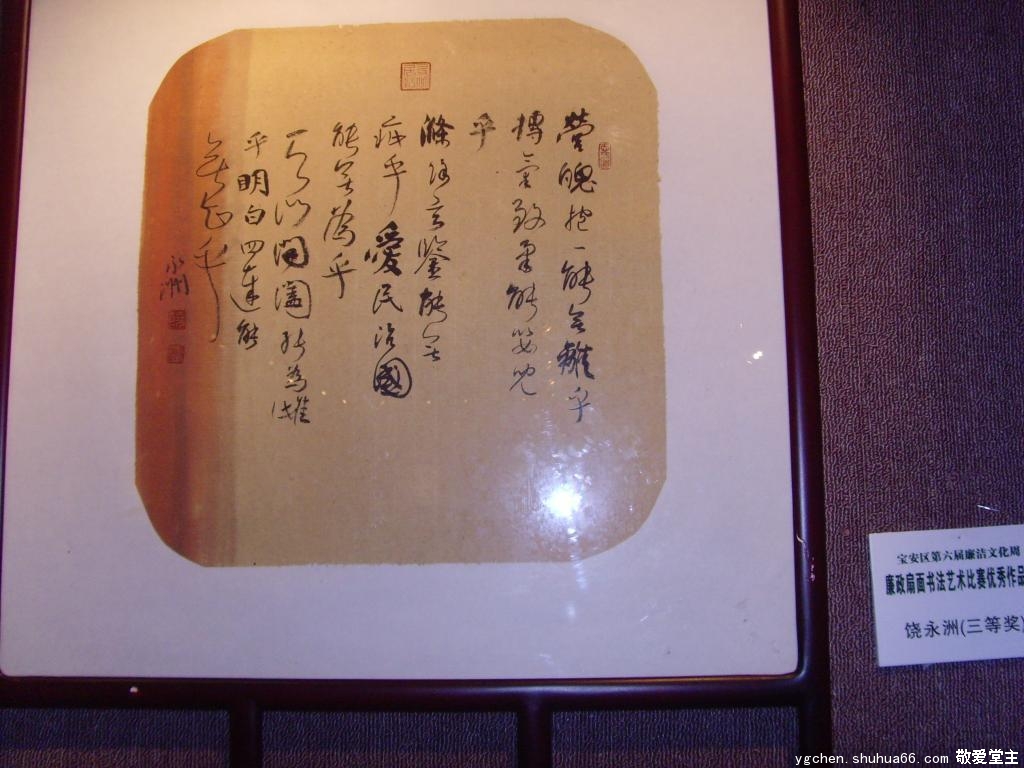 營魄抱一能無離乎
摶氣致柔能嬰兒
乎
滌除玄鑒能無
疵乎愛民治國
能無為乎
天門開闔能為雌
乎明白四達能
無知乎
永洲
宝安区第六届廉洁文化周
廉政扇面书法艺术比赛优秀作品
饶永洲(三等奖)
ygchen.shuhua66.com 敬爱堂主